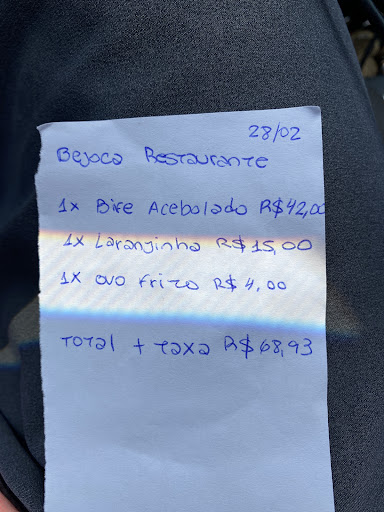 28/02
Bejoca Restaurante
1x Bife Acebolado R$42,00
1x Laranjinha R$15,00
1x ovo frito R$ 4,00
Total + Taxa R$68,93